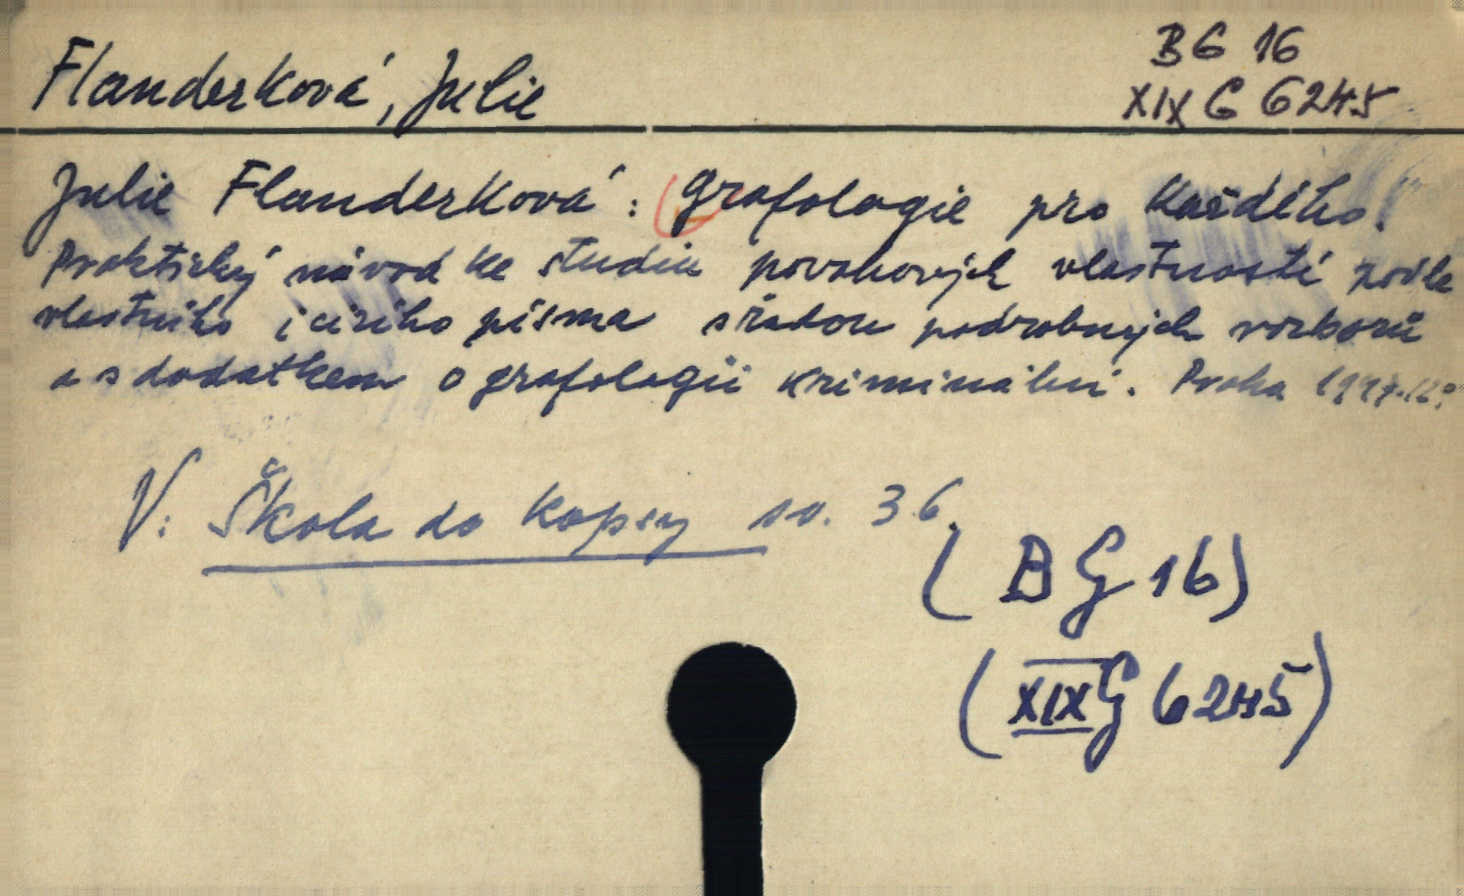 BG 16
Flanderková, Julie
XIX G 6245
Julie Flanderková: Grafologie pro každého.
Praktický návod ke studiu povahových vlastností podle
vlastního i cizího písma s řadou podrobných rozborů
a s dodatkem o grafologii kriminální. Praha
V: Škola do kapsy sv. 36.
(BG 16)
(XIX G 6245)